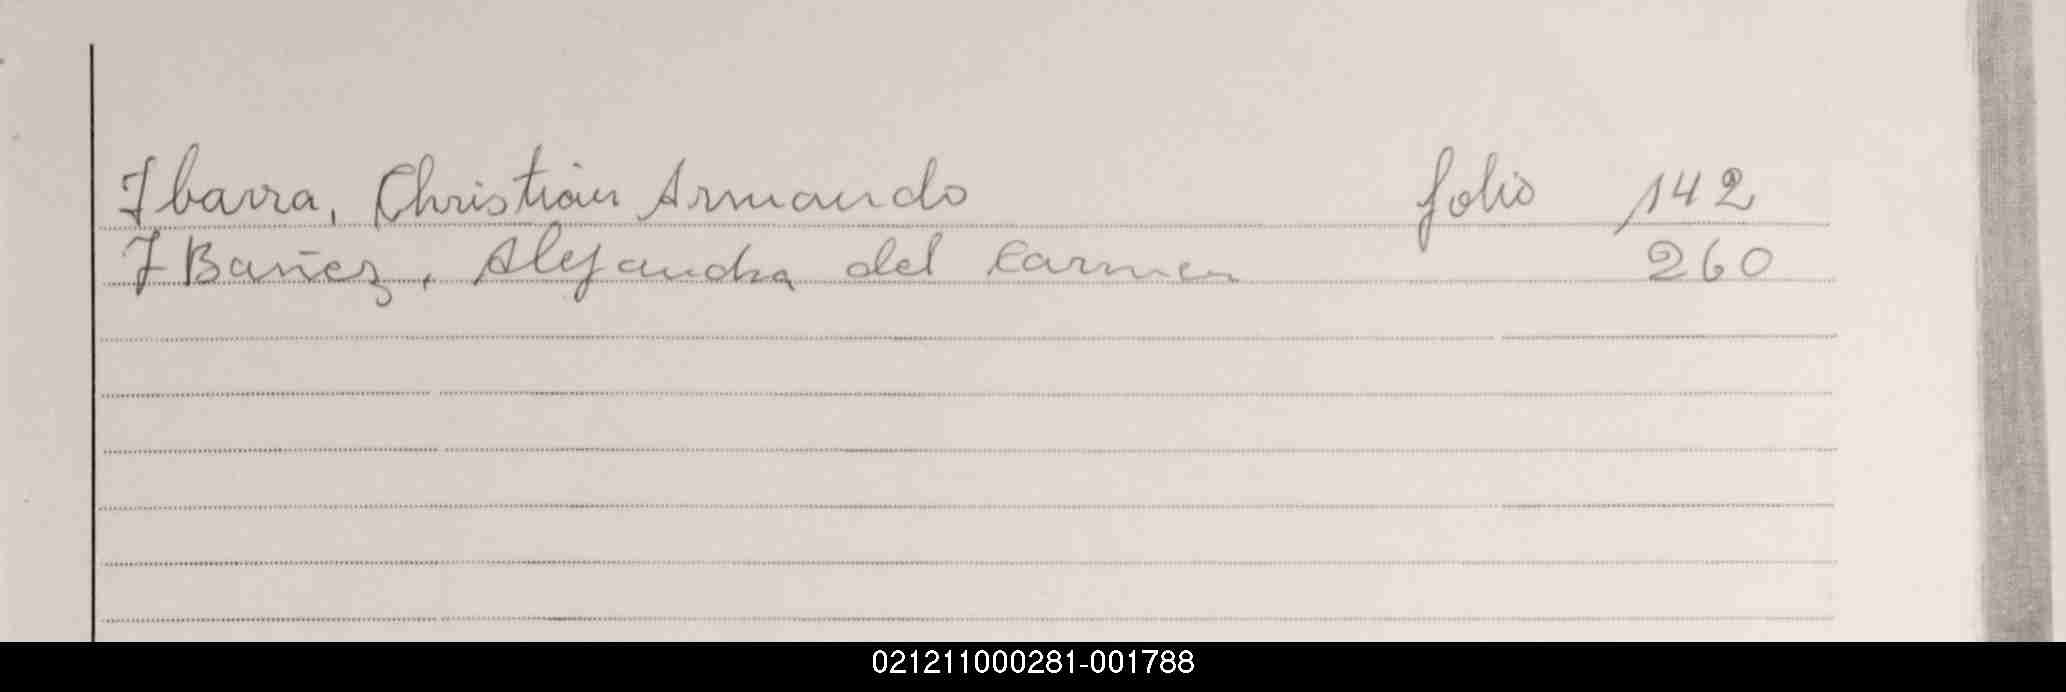 Ibarra, Christian Armando folio 142
IBañez, Alejandra del Carmen 260
021211000281-001788